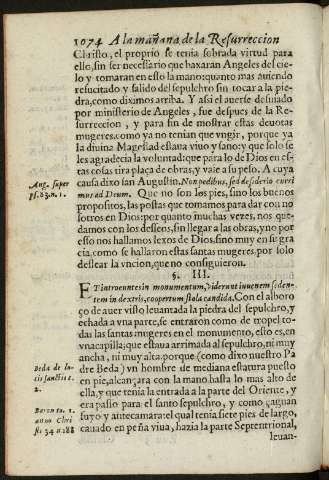 1074 A la mañana de la Resurreccion
Christo, el proprio se tenia sobrada virtud para
ello, sin ser necessario que baxaran Angeles del cie-
lo y tomaran en esto la mano: quanto mas auiendo
resucitado y salido del sepulchro sin tocar a la pie-
dra, como diximos arriba. Y assi el auerse desuiado
por ministerio de Angeles, fue despues de la Re-
surreccion, y para fin de mostrar estas deuotas
mugeres como ya no tenian que vngir, porque ya
la diuina Magestad estaua viuo y sano: y que solo se
les agradecia la voluntad: que para lo de Dios en es-
tas cosas tira plaça de obras, y vale a su peso. A cuya
causa dixo san Augustin. Non pedibus, sed desiderio curri
mur ad Deum. Que no son los pies, sino los buenos
propositos, las postas que tomamos para dar con no
sotros en Dios: por quanto muchas vezes, nos que-
damos con los desseos, sin llegar a las obras, y no por
esso nos hallamos lexos de Dios, sino muy en su gra
cia, como se hallaron estas santas mugeres por solo
dessear la vncion, que no consiguieron.
Aug. super
ps. 83. n. 1.
§. III.
ET introeuntes in monumentum, viderunt iuuenem seden-
tem in dextris, coopertum stola candida. Con el alboro
ço de auer visto leuantada la piedra del sepulchro, y
echada a vna parte, se entraron como de tropel to-
das las santas mugeres en el monumento, esto es, en
vna capilla; que estaua arrimada al sepulchro, ni muy
ancha, ni muy alta. porque (como dixo nuestro Pa
dre Beda) vn hombre de mediana estatura puesto
en pie, alcançara con la mano hasta lo mas alto de
ella, y que tenia la entrada a la parte del Oriente, y
era passo para el santo sepulchro, y como çaguan
suyo y antecamara: el qual tenia siete pies de largo,
cauado en peña viua, hazia la parte Septentrional,
Beda de lo-
cis sanctis c.
2.
Baron to. 1.
anno Chri
sti 34 n. 188
leuan-